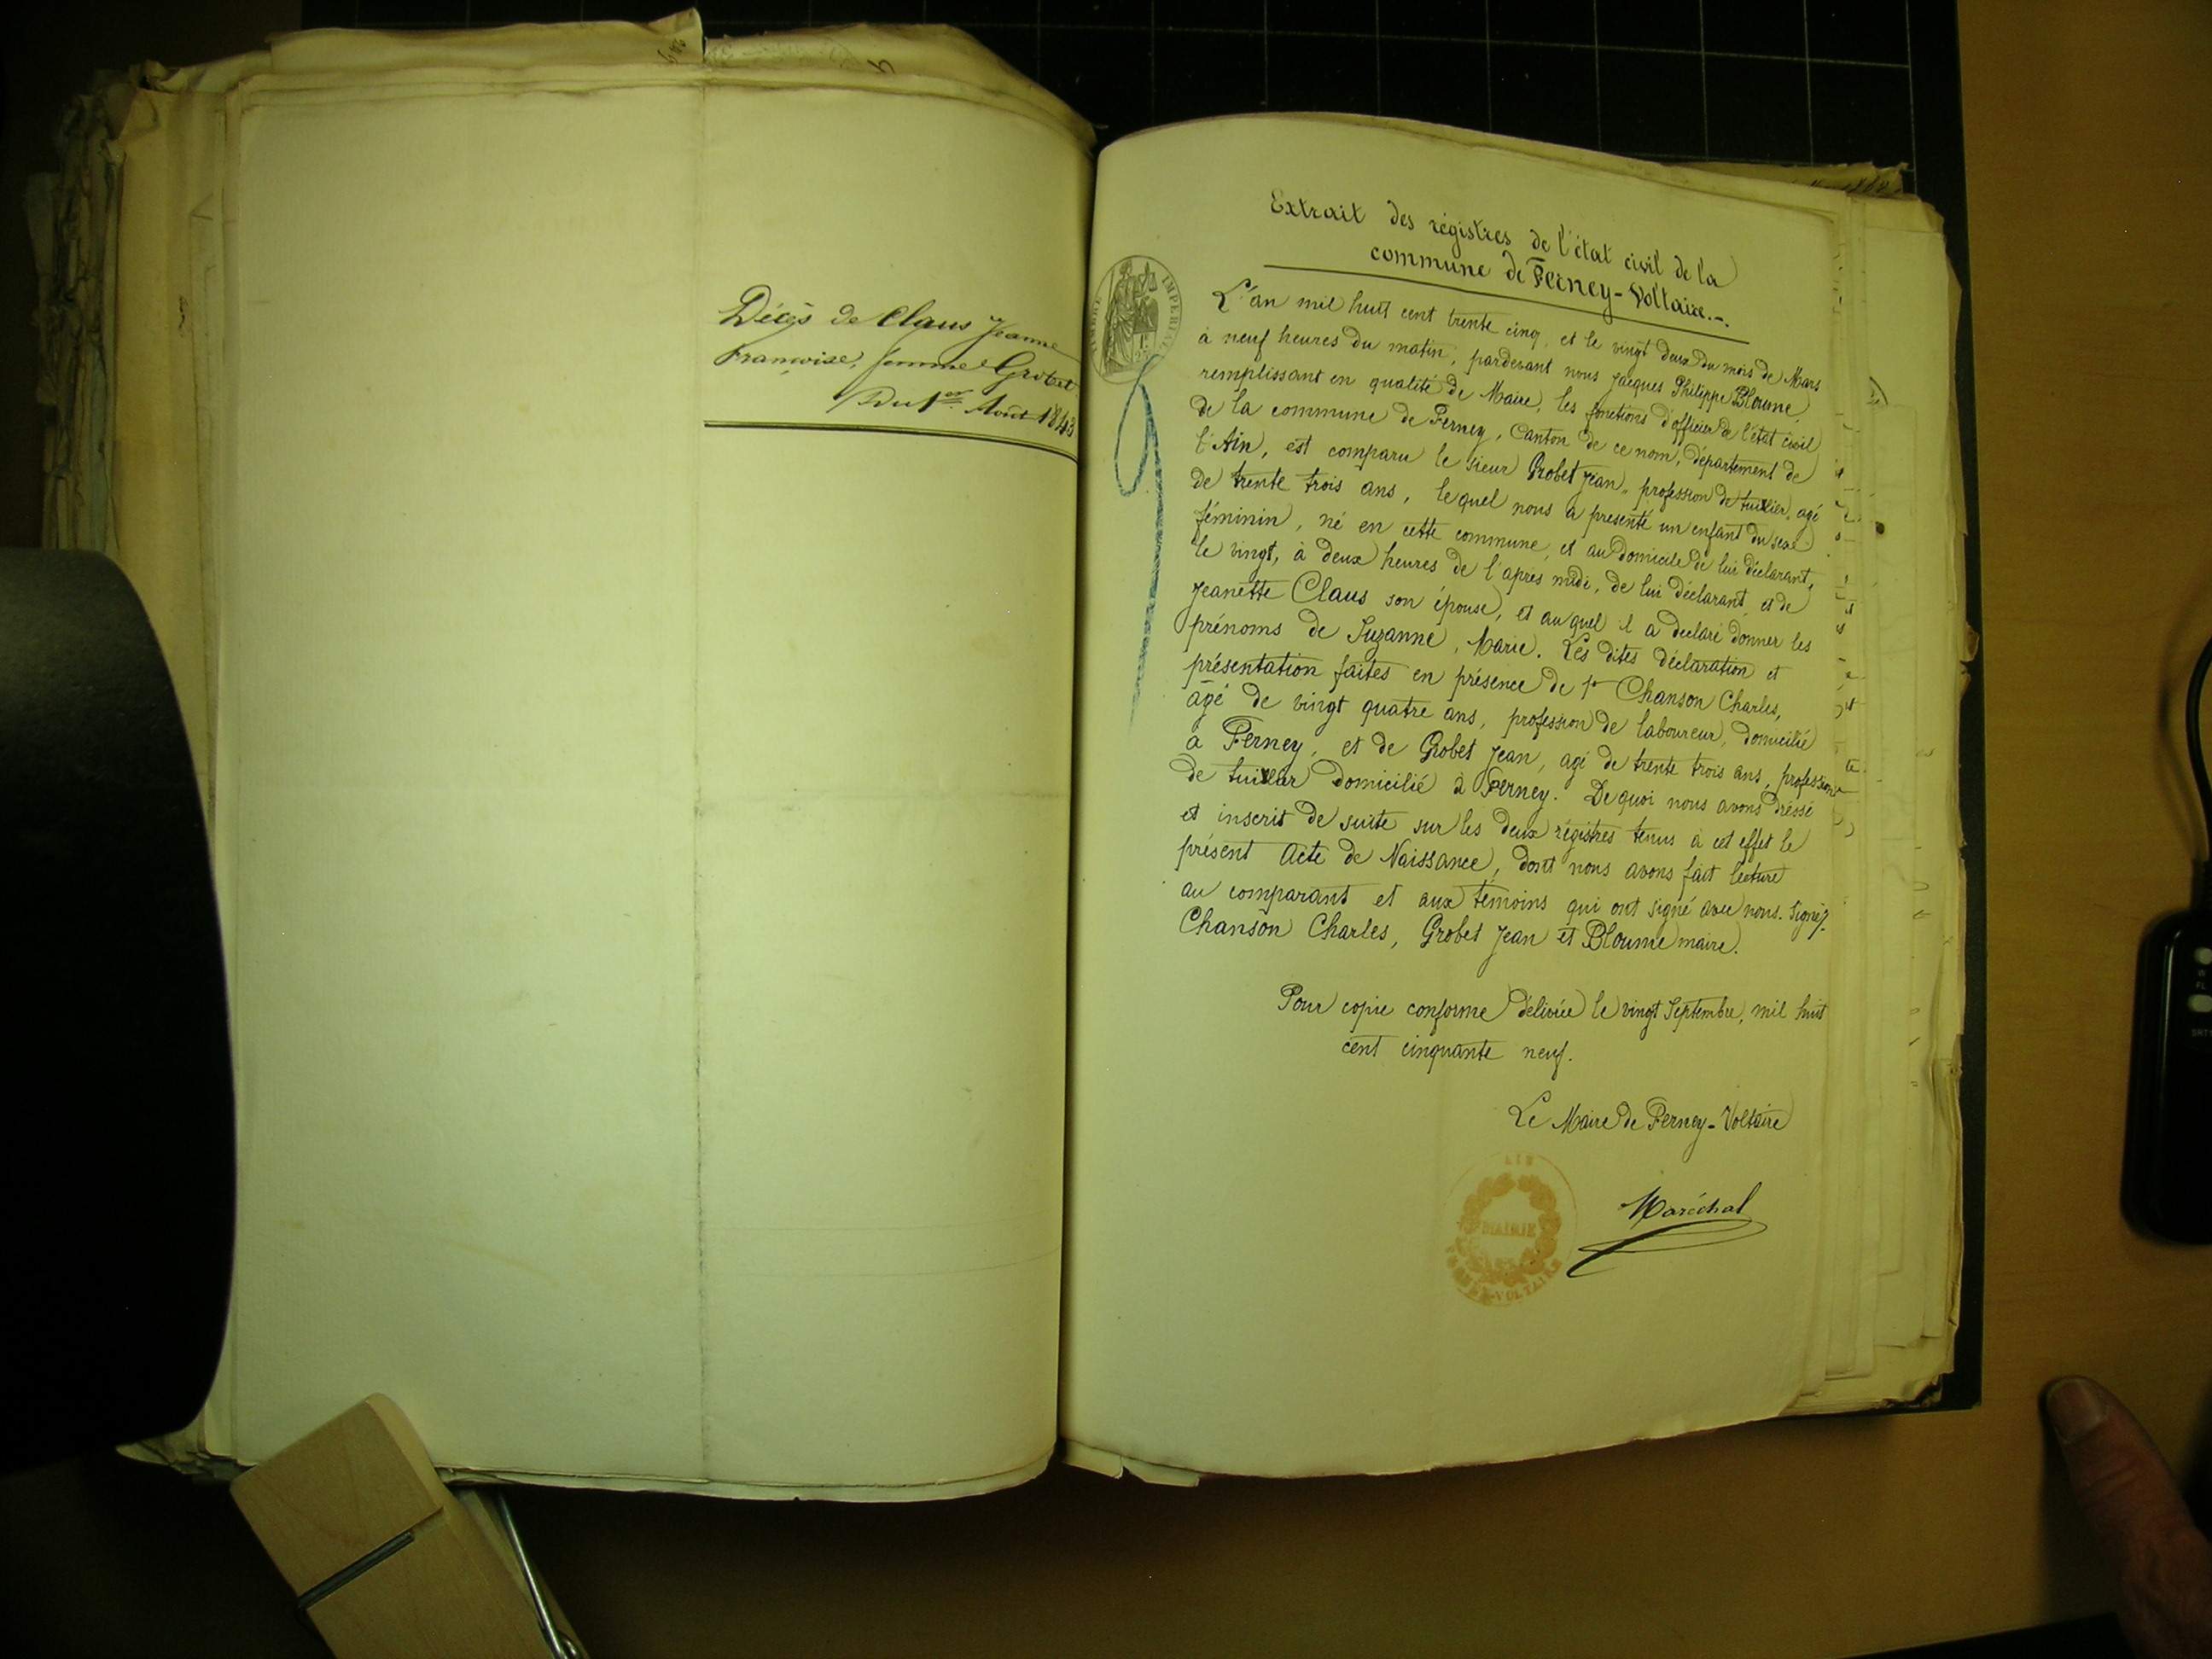 Décès de Claus Jeanne
Françoise, femme Grobet
Du 1er Août 1843
Extrait des régistres de l'état civil de la
commune de Ferney-Voltaire.-.
TIMBRE IMPERIAL
L'an mil huit cent trente cinq, et le vingt deux du mois de Mars
à neuf heures du matin, pardevant nous Jacques Philippe Bloume,
remplissant en qualité de Maire, les fonctions d'officier de l'état civil
de la commune de Ferney, Canton de ce nom, département de
l'Ain, est comparu le sieur Grobet Jean, profession de tuillier, agé
de trente trois ans, lequel nous a presenté un enfant du sexe
féminin, né en cette commune, et au domicile de lui déclarant,
le vingt, à deux heures de l'après midi, de lui déclarant, et de
Jeanette Claus son épouse, et auquel il a declaré donner les
prénoms de Suzanne, Marie. Les dites déclaration et
présentation faites en présence de 1° Chanson Charles,
agé de vingt quatre ans, profession de laboureur, domicilié
à Ferney, et de Grobet Jean, agé de trente trois ans, profession
de tuillier domicilié à Ferney. De quoi nous avons dressé
et inscrit de suite sur les deux régistres tenus à cet effet le
présent Acte de Naissance, dont nous avons fait lecture
au comparant et aux témoins qui ont signé avec nous. Signé/.
Chanson Charles, Grobet Jean et Bloume maire.
Pour copie conforme délivrée le vingt Septembre, mil huit
cent cinquante neuf.
Le Maire de Ferney-Voltaire
Maréchal
AIN
MAIRIE
FERNEY-VOLTAIRE